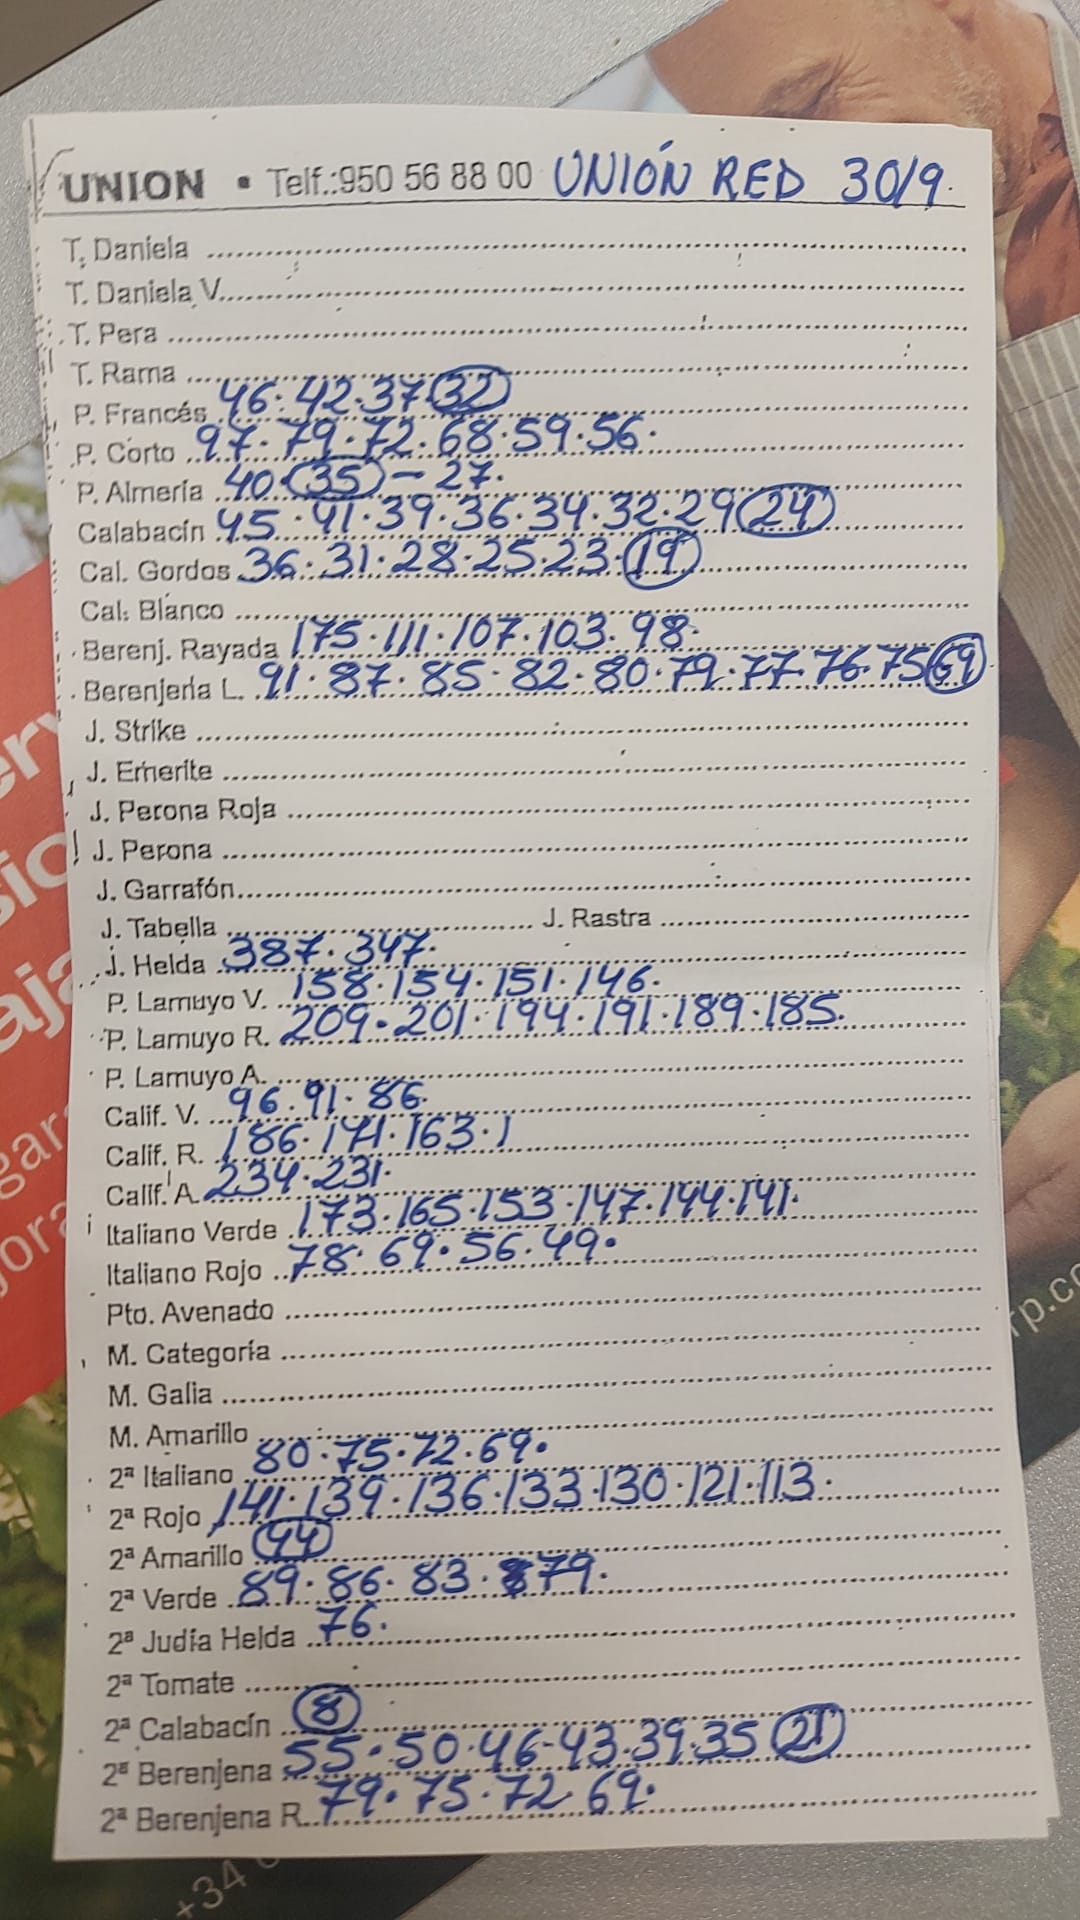 UNION • Telf.:950 56 88 00 UNIÓN RED 30/9.
T. Daniela
T. Daniela V.
T. Pera
T. Rama
P. Francés 46. 42. 37 32
P. Corto 97. 79. 72. 68. 59. 56.
P. Almería 40. 35 - 27.
Calabacín 45. 41. 39. 36. 34. 32. 29 24
Cal. Gordos 36. 31. 28. 25. 23. 19
Cal. Blanco
Berenj. Rayada 175. 111. 107. 103. 98.
Berenjena L. 91. 87. 85. 82. 80. 79. 77. 76. 75 69
J. Strike
J. Emerite
J. Perona Roja
J. Perona
J. Garrafón
J. Tabella J. Rastra
J. Helda 387. 347.
P. Lamuyo V. 158. 154. 151. 146.
P. Lamuyo R. 209. 201. 194. 191. 189. 185.
P. Lamuyo A.
Calif. V. 96. 91. 86.
Calif. R. 186. 171. 163. 1
Calif. A. 234. 231.
Italiano Verde 173. 165. 153. 147. 144. 141.
Italiano Rojo 78. 69. 56. 49.
Pto. Avenado
M. Categoría
M. Galia
M. Amarillo
2ª Italiano 80. 75. 72. 69.
2ª Rojo 141. 139. 136. 133. 130. 121. 113.
2ª Amarillo 94
2ª Verde 89. 86. 83. 79.
2ª Judía Helda 76.
2ª Tomate
2ª Calabacín 8
2ª Berenjena 55. 50. 46-43. 39. 35 21
2ª Berenjena R. 79. 75. 72. 69.
rp.co
+34